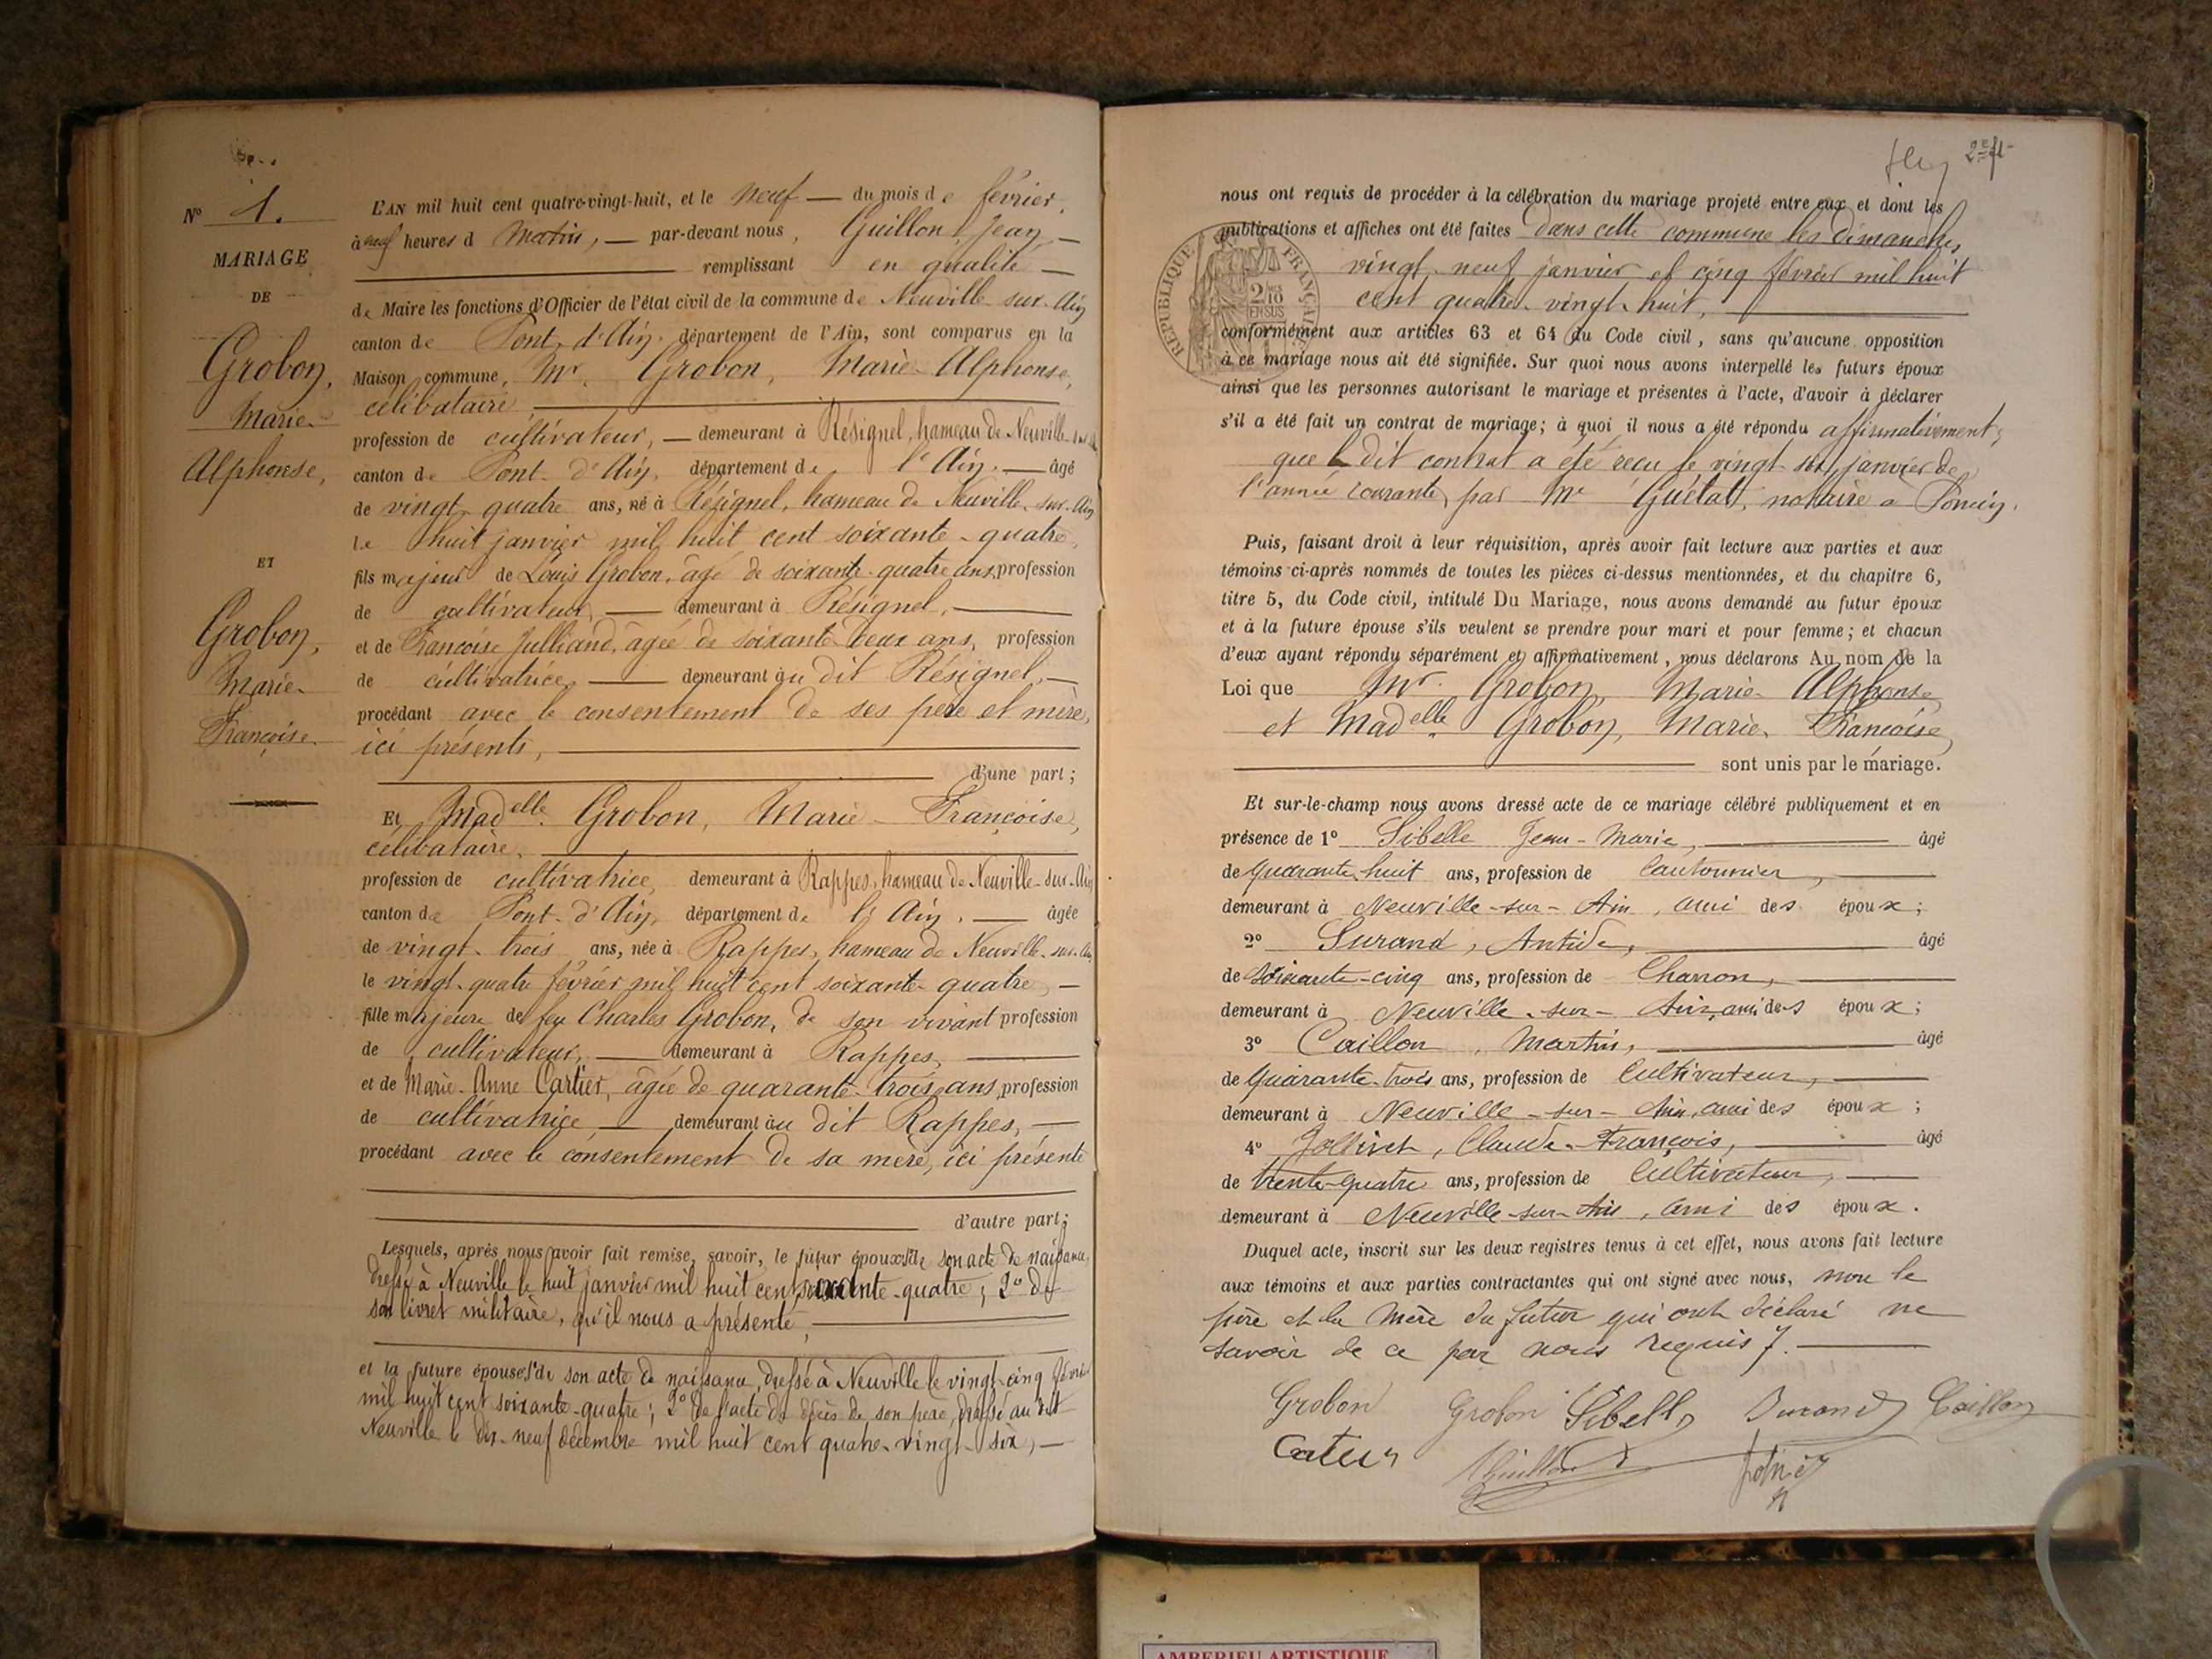 N° 1.
MARIAGE
DE
Grobon,
Marie-
Alphonse,
ET
Grobon,
Marie-
Françoise.
L'AN mil huit cent quatre-vingt-huit, et le neuf — du mois de février,
à neuf heures d matin, — par-devant nous, Guillon, Jean —
remplissant en qualité —
de Maire les fonctions d'Officier de l'état civil de la commune de Neuville-sur-Ain
canton de Pont-d'Ain, département de l'Ain, sont comparus en la
Maison commune, Mr. Grobon, Marie-Alphonse,
célibataire,
profession de cultivateur, — demeurant à Résignel, hameau de Neuville-sur-Ain
canton de Pont-d'Ain, département de l'Ain. — âgé
de vingt-quatre ans, né à Résignel, hameau de Neuville-sur-Ain
le huit janvier mil huit cent soixante-quatre,
fils majeur de Louis Grobon, âgé de soixante-quatre ans, profession
de cultivateur, — demeurant à Résignel, —
et de Françoise Julliand, âgée de soixante-deux ans, profession
de cultivatrice, — demeurant au dit Résignel, —
procédant avec le consentement de ses père et mère,
ici présents, —
d'une part;
Et Madelle. Grobon, Marie-Françoise,
célibataire,
profession de cultivatrice, demeurant à Rappes, hameau de Neuville-sur-Ain
canton de Pont-d'Ain, département de l'Ain. — âgée
de vingt-trois ans, née à Rappes, hameau de Neuville-sur-Ain
le vingt-quatre février mil huit cent soixante-quatre, —
fille majeure de feu Charles Grobon, de son vivant profession
de cultivateur, — demeurant à Rappes, —
et de Marie-Anne Cartier, âgée de quarante-trois ans, profession
de cultivatrice, — demeurant au dit Rappes, —
procédant avec le consentement de sa mère, ici présente
d'autre part;
Lesquels, après nous avoir fait remise, savoir, le futur époux 1° de son acte de naissance,
dressé à Neuville le huit janvier mil huit cent soixante-quatre; 2° de
son livret militaire, qu'il nous a présenté, —
et la future épouse 1° de son acte de naissance, dressé à Neuville le vingt-cinq février
mil huit cent soixante-quatre; 2° de l'acte de décès de son père, dressé au dit
Neuville le dix-neuf décembre mil huit cent quatre-vingt-six, —
2e ft
nous ont requis de procéder à la célébration du mariage projeté entre eux et dont les
publications et affiches ont été faites dans cette commune les dimanches
vingt-neuf janvier et cinq février mil huit
cent quatre-vingt-huit, —
RÉPUBLIQUE FRANÇAISE
2/10 EN SUS
conformément aux articles 63 et 64 du Code civil, sans qu'aucune opposition
à ce mariage nous ait été signifiée. Sur quoi nous avons interpellé les futurs époux
ainsi que les personnes autorisant le mariage et présentes à l'acte, d'avoir à déclarer
s'il a été fait un contrat de mariage; à quoi il nous a été répondu affirmativement;
que le dit contrat a été reçu le vingt-six janvier de
l'année courante, par Me Guétat, notaire à Poncin.
Puis, faisant droit à leur réquisition, après avoir fait lecture aux parties et aux
témoins ci-après nommés de toutes les pièces ci-dessus mentionnées, et du chapitre 6,
titre 5, du Code civil, intitulé Du Mariage, nous avons demandé au futur époux
et à la future épouse s'ils veulent se prendre pour mari et pour femme; et chacun
d'eux ayant répondu séparément et affirmativement, nous déclarons Au nom de la
Loi que Mr. Grobon, Marie-Alphonse,
et Madelle. Grobon, Marie-Françoise,
sont unis par le mariage.
Et sur-le-champ nous avons dressé acte de ce mariage célébré publiquement et en
présence de 1° Sibelle Jean-Marie, — âgé
de quarante-huit ans, profession de Cantonnier, —
demeurant à Neuville-sur-Ain, ami des époux;
2° Durand, Antide, — âgé
de soixante-cinq ans, profession de Charron, —
demeurant à Neuville-sur-Ain, ami des époux;
3° Caillon, Martin, — âgé
de quarante-trois ans, profession de Cultivateur, —
demeurant à Neuville-sur-Ain, ami des époux;
4° Jollivet, Claude-François, — âgé
de trente-quatre ans, profession de Cultivateur, —
demeurant à Neuville-sur-Ain, ami des époux.
Duquel acte, inscrit sur les deux registres tenus à cet effet, nous avons fait lecture
aux témoins et aux parties contractantes qui ont signé avec nous, non le
père et la mère du futur qui ont déclaré ne
savoir de ce par nous requis. —
Grobon Grobon Sibelle Durand Caillon
Guillon
AMBERIEU ARTISTIQUE